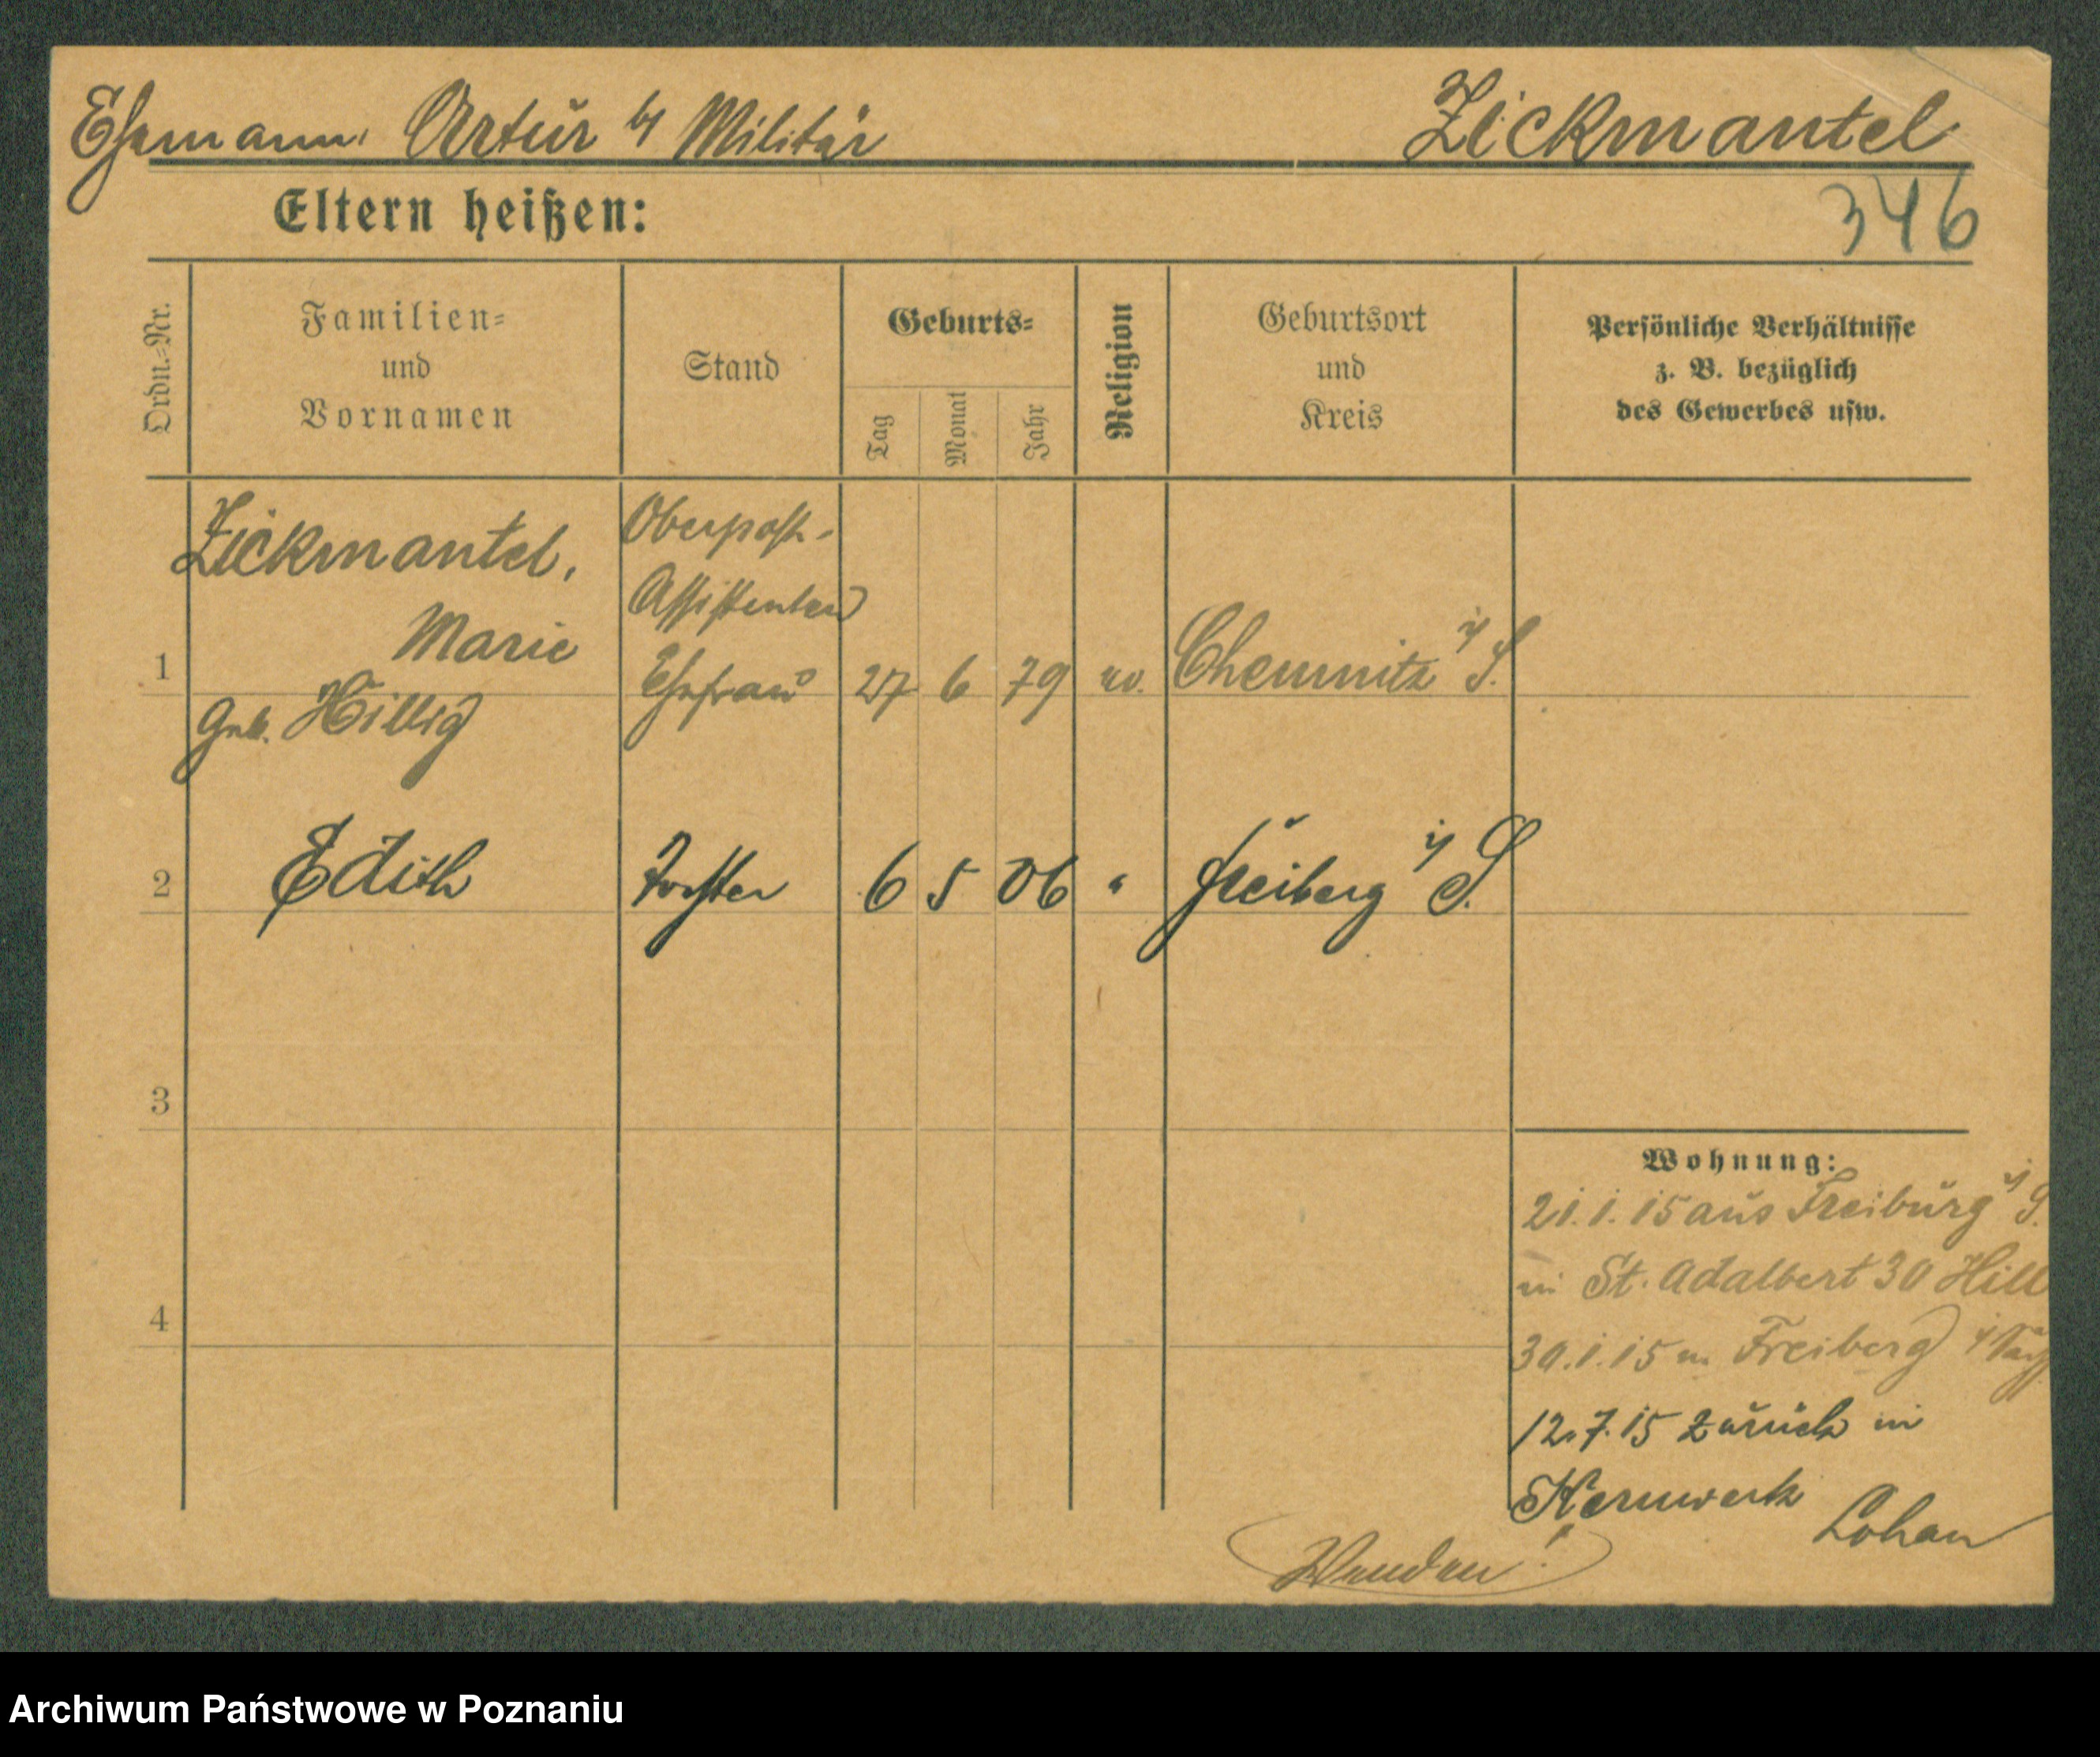 Ehemann Artur b/ Militär Zickmantel
Eltern heißen:
346
Ordn.-Nr.
Familien-
und
Vornamen
Stand
Geburts-
Tag
Monat
Jahr
Religion
Geburtsort
und
Kreis
Persönliche Verhältnisse
z. B. bezüglich
des Gewerbes usw.
Zickmantel,
Marie
geb. Hillig
Oberpost-
Assistenten
Ehefrau
1 27 6 79 ev. Chemnitz i/S.
2 Edith Tochter 6 5 06 " Freiberg i/S.
3
4
Wohnung:
21.1.15 aus Freiburg i/S.
in St. Adalbert 30 Hill
30.1.15 n. Freiberg i/
12.7.15 zurück in
Kernwerk
Lohan
Wenden!
Archiwum Państwowe w Poznaniu